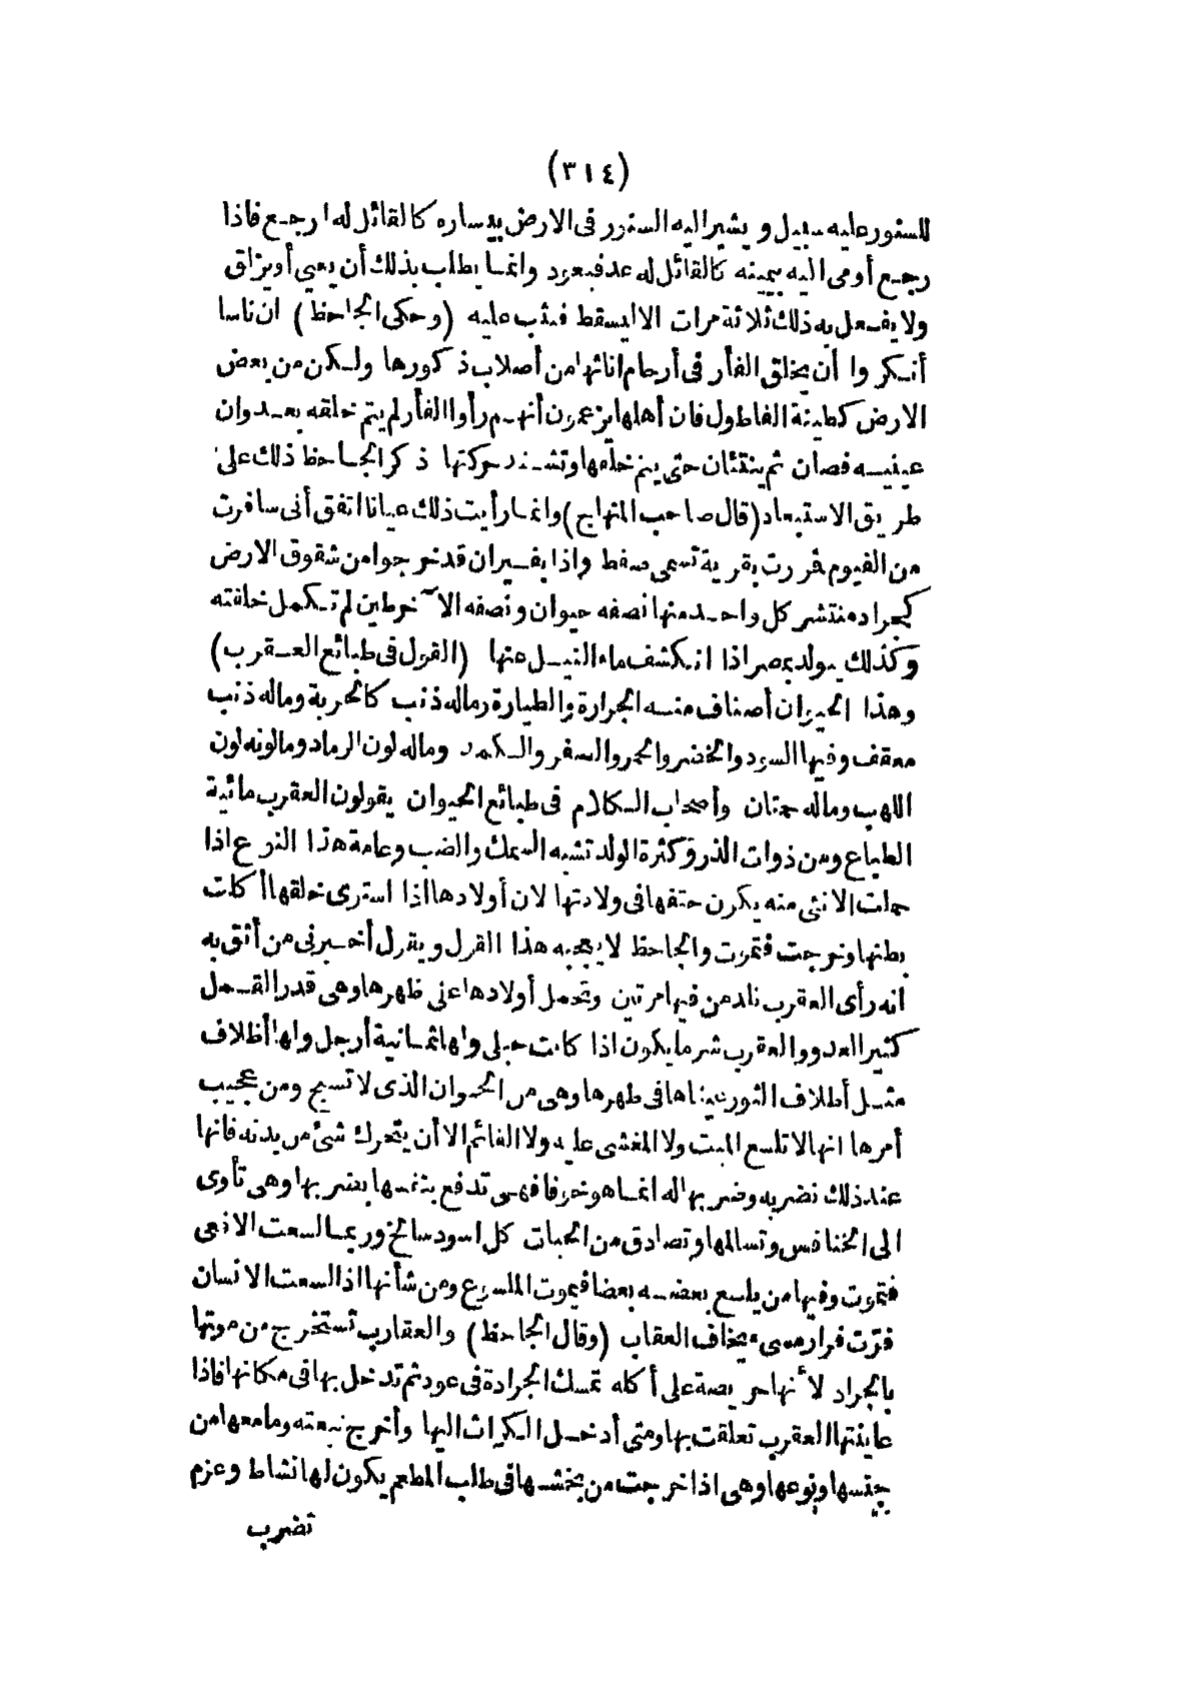 (٣١٤)
للسنور عليه سبيل ويشير اليه السنور فى الارض بيساره كالقائل له ارجع فاذا
رجع أومى اليه بيمينه كالقائل له عد فيعود وانما يطلب بذلك أن يعي أو يزلق
ولا يفعل به ذلك ثلاثة مرات الا ليسقط فيثب عليه (وحكى الجاحظ) ان ناسا
أنكروا أن يخلق الفأر فى أرحام اناثها من أصلاب ذكورها ولكن من بعض
الارض كطينة القاطول فان أهلها يزعمون أنهم رأوا الفأر لم يتم خلقه بعد وان
عينيه فصان ثم ينتئان حتى يتم خلقها وتشتد حركتها ذكر الجاحظ ذلك على
طريق الاستبعاد (قال صاحب المنهاج) وانما رأيت ذلك عيانا اتفق أنى سافرت
من الفيوم فمررت بقرية تسمى صفط واذا بفيران قد خرجوا من شقوق الارض
كجراد منتشر كل واحد منها نصفه حيوان ونصفه الآخر طين لم تكمل خلقته
وكذلك يولد بمصر اذا انكشف ماء النيل عنها (القول فى طبائع العقرب)
وهذا الحيوان أصناف منه الجرارة والطيارة وماله ذنب كالحربة وماله ذنب
معقف وفيها السود والخضر والحمر والصفر والكمد وماله لون الرماد ومالونه لون
اللهب وماله حمتان وأصحاب الكلام فى طبائع الحيوان يقولون العقرب مائية
الطباع ومن ذوات الذرو وكثرة الولد تشبه السمك والضب وعامة هذا النوع اذا
حملت الانثى منه يكون حتفها فى ولادتها لان أولادها اذا استوى خلقها أكلت
بطنها وخرجت فتموت والجاحظ لا يعجبه هذا القول ويقول أخبرنى من أثق به
أنه رأى العقرب تلد من فيها مرتين وتحمل أولادها على ظهرها وهى قدر القمل
كثير العدد والعقرب شر ما يكون اذا كانت حبلى ولها ثمانية أرجل ولها أظلاف
مثل أظلاف الثور عيناها فى ظهرها وهى من الحيوان الذى لا تسبح ومن عجيب
أمرها انها لا تلسع الميت ولا المغشى عليه ولا النائم الا أن يتحرك شئ من بدنه فانها
عند ذلك تضربه وضربها له انما هو خوفا فهى تدفع بنفسها بضربها وهى تأوى
الى الخنافس وتسالمها وتصادق من الحيات كل اسود سالخ وربما لسعت الافعى
فتموت وفيها من يلسع بعضه بعضا فيموت الملسوع ومن شأنها اذا لسعت الانسان
فرّت فرار مسىء يخاف العقاب (وقال الجاحظ) والعقارب تستخرج من موتها
بالجراد لأنها حريصة على أكله تمسك الجرادة فى عود ثم تدخل بها فى مكانها فاذا
عاينتها العقرب تعلقت بها ومتى أدخل الكراث اليها وأخرج تبعته وما معها من
جنسها ونوعها وهى اذا خرجت من بخشها فى طلب المطعم يكون لها نشاط وعزم
تضرب